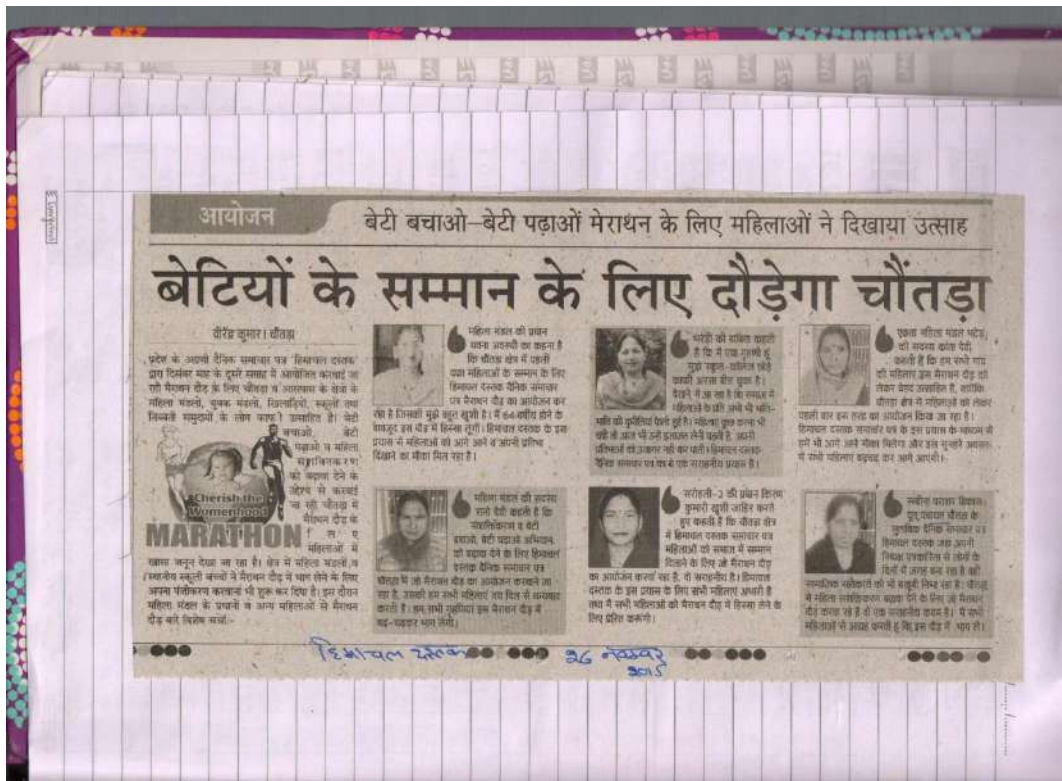 आयोजन
बेटी बचाओ–बेटी पढ़ाओं मेराथन के लिए महिलाओं ने दिखाया उत्साह
बेटियों के सम्मान के लिए दौड़ेगा चौंतड़ा
वीरेंद्र कुमार। चौंतड़ा
प्रदेश के अग्रणी दैनिक समाचार पत्र हिमाचल दस्तक
द्वारा दिसंबर माह के दूसरे सप्ताह में आयोजित करवाई जा
रही मैराथन दौड़ के लिए चौंतड़ा व आसपास के क्षेत्रों के
महिला मंडलों, युवक मंडलों, खिलाड़ियों, स्कूलों तथा
तिब्बती समुदायों के लोग काफी उत्साहित हैं। बेटी
बचाओ, बेटी
पढ़ाओ व महिला
सशक्तिकरण
को बढ़ावा देने के
उद्देश्य से करवाई
जा रही चौंतड़ा में
मैराथन दौड़ के
लिए
महिलाओं में
Cherish the
Womenhood
MARATHON
खासा जनून देखा जा रहा है। क्षेत्र में महिला मंडलों व
स्थानीय स्कूली बच्चों ने मैराथन दौड़ में भाग लेने के लिए
अपना पंजीकरण करवाना भी शुरू कर दिया है। इस दौरान
महिला मंडल के प्रधानों व अन्य महिलाओं से मैराथन
दौड़ बारे विशेष चर्चा:-
महिला मंडल की प्रधान
अवस्थी का कहना है
कि चौंतड़ा क्षेत्र में पहली
दफा महिलाओं के सम्मान के लिए
हिमाचल दस्तक दैनिक समाचार
पत्र मैराथन दौड़ का आयोजन कर
रहा है जिसकी मुझे बहुत खुशी है। मैं 64 वर्षीय होने के
बावजूद इस दौड़ में हिस्सा लूंगी। हिमाचल दस्तक के इस
प्रयास से महिलाओं को आगे आने व अपनी प्रतिभा
दिखाने का मौका मिल रहा है।
महिला मंडल की सदस्य
देवी कहती है कि
सशक्तिकरण व बेटी
बचाओ, बेटी पढ़ाओ अभियान
को बढ़ावा देने के लिए हिमाचल
दस्तक दैनिक समाचार पत्र
चौंतड़ा में जो मैराथन दौड़ का आयोजन करवाने जा
रहा है, उसकी हम सभी महिलाएं तय दिल से धन्यवाद
करती हैं। हम सभी गृहणियां इस मैराथन दौड़ में
बढ़-चढ़कर भाग लेंगी।
कहती
है कि मैं एक गृहणी हूं
मुझे स्कूल-कॉलेज छोड़े
काफी अरसा बीत चुका है।
देखने में आ रहा है कि समाज में
महिलाओं के प्रति अभी भी भांति-
भांति की कुरीतियां फैली हुई हैं। महिलाएं कुछ करना भी
चाहें तो आज भी उन्हें इजाजत लेनी पड़ती है, अपनी
प्रतिभाओं को उजागर नहीं कर पाती। हिमाचल दस्तक
दैनिक समाचार पत्र का ये एक सराहनीय प्रयास है।
सरोहली-2 की प्रधान किरण
कुमारी खुशी जाहिर करते
हुए कहती हैं कि चौंतड़ा क्षेत्र
में हिमाचल दस्तक समाचार पत्र
महिलाओं को समाज में सम्मान
दिलाने के लिए जो मैराथन दौड़
का आयोजन करवा रहा है, वो सराहनीय है। हिमाचल
दस्तक के इस प्रयास के लिए सभी महिलाएं आभारी हैं
तथा मैं सभी महिलाओं को मैराथन दौड़ में हिस्सा लेने के
लिए प्रेरित करूंगी।
एकता महिला मंडल
की सदस्या कांता देवी
कहती हैं कि हम सभी गांव
की महिलाएं इस मैराथन दौड़ को
लेकर बेहद उत्साहित हैं, क्योंकि
चौंतड़ा क्षेत्र में महिलाओं को लेकर
पहली बार इस तरह का आयोजन किया जा रहा है।
हिमाचल दस्तक समाचार पत्र के इस प्रयास के माध्यम से
हमें भी आगे आने मौका मिलेगा और इस सुनहरे अवसर
में सभी महिलाएं बढ़चढ़ कर आगे आएंगी।
चौंतड़ा के
मुताबिक दैनिक समाचार पत्र
हिमाचल दस्तक जहां अपनी
निष्पक्ष पत्रकारिता से लोगों के
दिलों में जगह बना रहा है वहीं
सामाजिक सरोकारों को भी बखूबी निभा रहा है। चौंतड़ा
में महिला सशक्तिकरण बढ़ावा देने के लिए जो मैराथन
दौड़ करवा रहे हैं वो एक सराहनीय कदम है। मैं सभी
महिलाओं से आग्रह करती हूं कि इस दौड़ में भाग लें।
हिमाचल दस्तक 26 नवम्बर
2015